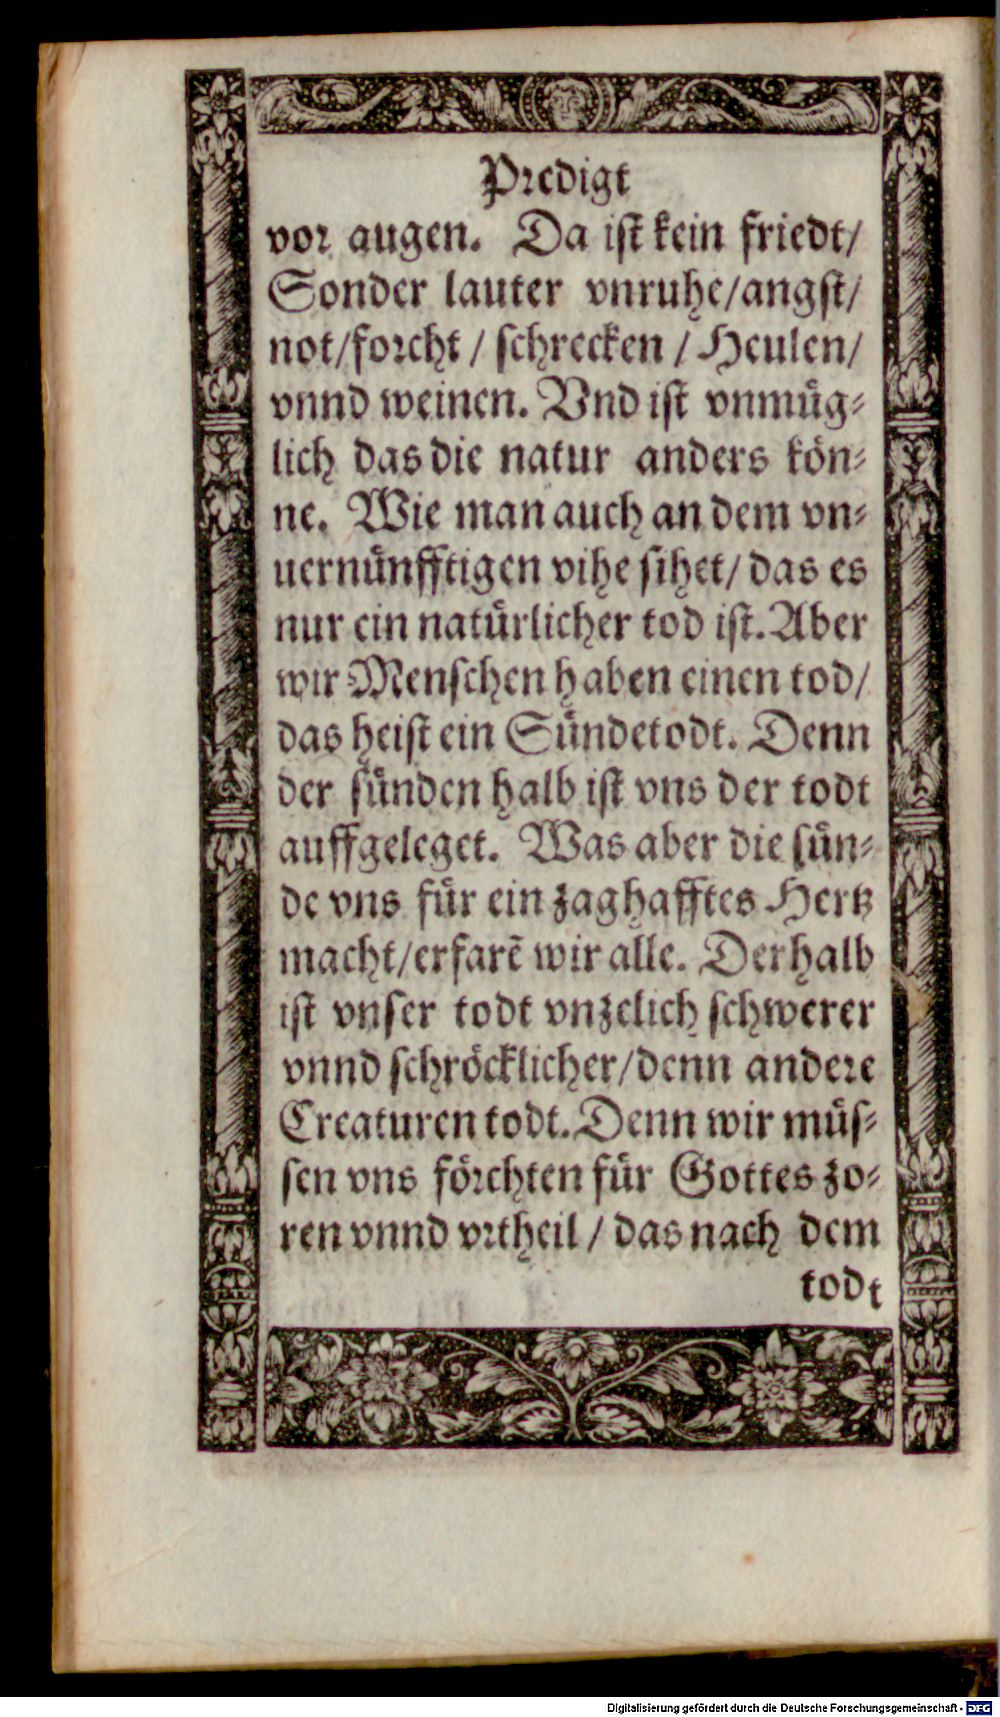 Predigt
vor augen. Da ist kein friedt/
Sonder lauter vnruhe/angst/
not/forcht / schrecken / Heulen/
vnnd weinen. Vnd ist vnmuͤg-
lich das die natur anders koͤn-
ne. Wie man auch an dem vn-
uernuͤnfftigen vihe sihet/ das es
nur ein natuͤrlicher tod ist. Aber
wir Menschen haben einen tod/
das heist ein Suͤndetodt. Denn
der suͤnden halb ist vns der todt
auffgeleget. Was aber die suͤn-
de vns fuͤr ein zaghafftes Hertz
macht/erfarē wir alle. Derhalb
ist vnser todt vnzelich schwerer
vnnd schroͤcklicher/denn andere
Creaturen todt. Denn wir muͤs-
sen vns foͤrchten fuͤr Gottes zo-
ren vnnd vrtheil / das nach dem
todt
Digitalisierung gefördert durch die Deutsche Forschungsgemeinschaft - DFG